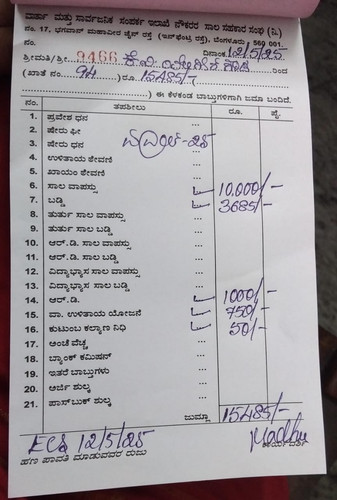 ವಾರ್ತಾ ಮತ್ತು ಸಾರ್ವಜನಿಕ ಸಂಪರ್ಕ ಇಲಾಖೆ ನೌಕರರ ಸಾಲ ಸಹಕಾರ ಸಂಘ (ನಿ.)
ನಂ. 17, ಭಗವಾನ್ ಮಹಾವೀರ ಜೈನ್ ರಸ್ತೆ (ಇನ್‌ಫೆಂಟ್ರಿ ರಸ್ತೆ), ಬೆಂಗಳೂರು 560 001.
ನಂ. ದಿನಾಂಕ 12/5/25
ಶ್ರೀಮತಿ/ಶ್ರೀ. 9466 ರಿಂದ
(ಖಾತೆ ನಂ. 94 )ರೂ. 15485/-
) ಈ ಕೆಳಕಂಡ ಬಾಬ್ತುಗಳಿಗಾಗಿ ಜಮಾ ಬಂದಿದೆ.
ನಂ. ತಪಶೀಲು ರೂ. ಪೈ.
1. ಪ್ರವೇಶ ಧನ ...
2. ಷೇರು ಫೀ
3. ಷೇರು ಧನ ಏಪ್ರಿಲ್-25 ...
4. ಉಳಿತಾಯ ಠೇವಣಿ ...
5. ಖಾಯಂ ಠೇವಣಿ ...
6. ಸಾಲ ವಾಪಸ್ಸು 10,000/-
7. ಬಡ್ಡಿ 3685/-
8. ತುರ್ತು ಸಾಲ ವಾಪಸ್ಸು ...
9. ತುರ್ತು ಸಾಲ ಬಡ್ಡಿ ...
10. ಆರ್.ಡಿ. ಸಾಲ ವಾಪಸ್ಸು ...
11. ಆರ್.ಡಿ. ಸಾಲ ಬಡ್ಡಿ ...
12. ವಿದ್ಯಾಭ್ಯಾಸ ಸಾಲ ವಾಪಸ್ಸು ...
13. ವಿದ್ಯಾಭ್ಯಾಸ ಸಾಲ ಬಡ್ಡಿ ...
14. ಆರ್.ಡಿ. 1000/-
15. ವಾ. ಉಳಿತಾಯ ಯೋಜನೆ 750/-
16. ಕುಟುಂಬ ಕಲ್ಯಾಣ ನಿಧಿ 50/-
17. ಅಂಚೆ ವೆಚ್ಚ ...
18. ಬ್ಯಾಂಕ್ ಕಮಿಷನ್ ...
19. ಇತರೆ ಬಾಬ್ತುಗಳು ...
20. ಅರ್ಜಿ ಶುಲ್ಕ ...
21. ಪಾಸ್‌ಬುಕ್ ಶುಲ್ಕ ...
ಜುಮ್ಲಾ 15485/-
ECS 12/5/25 Madhu
ಹಣ ಪಾವತಿ ಮಾಡುವವರ ರುಜು ಕಾರ್ಯದರ್ಶಿ